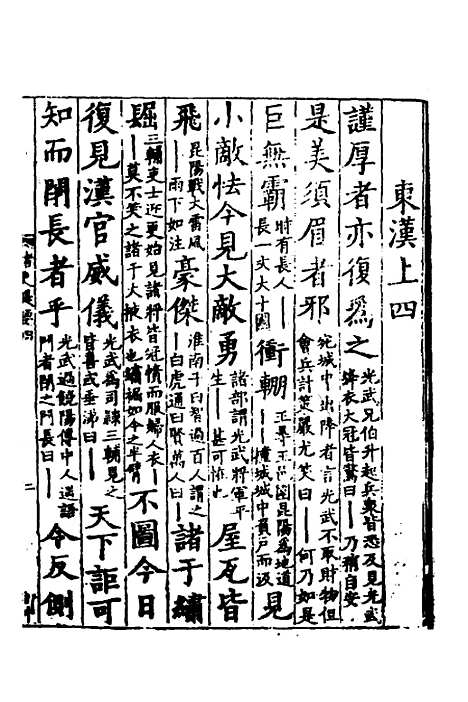 東漢上四
謹厚者亦復爲之光武兄伯升起兵衆皆恐及見光武絳衣大冠皆驚曰——乃稍自安
是美須眉者邪宛城中出降者言光武不取財物但會兵計策嚴尤笑曰——何乃如是
巨無霸時有長人——長一丈大十圍衝輣王尋王邑圍昆陽為地道——橦城城中負戶而汲見
小敵怯今見大敵勇諸部謂光武將軍平生——甚可恠也屋瓦皆
飛昆陽戰大雷風——雨下如注豪傑淮南子曰智過百人謂之——白虎通曰賢萬人曰——諸于繡
𧝎三輔吏士近更始見諸將皆冠幘而服婦人衣——莫不笑之諸于大掖衣也繡𧝎如今之半臂不圖今日
復見漢官威儀光武為司隸三輔見之皆喜或垂涕曰——天下詎可
知而閉長者乎光武過饒陽傳中人遥語門者閉之門長曰——令反側
諸史
四
二